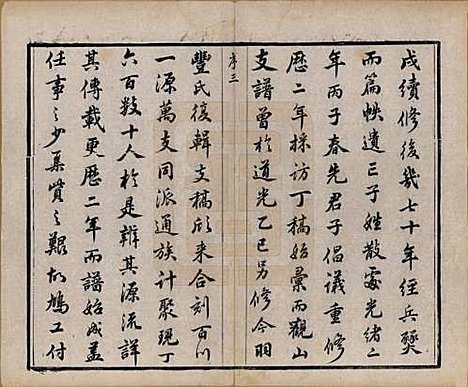 戌續修後幾七十年經兵燹
而篇帙遺亡子姓散處光緒二
年丙子春先君子倡議重修
歴二年採訪丁稿始彙而觀山
支譜曾於道光乙巳另修今羽
序三
豐氏復輯支稿欣來合刻百川
一源萬支同派通族計聚現丁
六百數十人於是辨其源流詳
其傳載更歴二年而譜始成蓋
任事之少集貲之艱故鳩工付